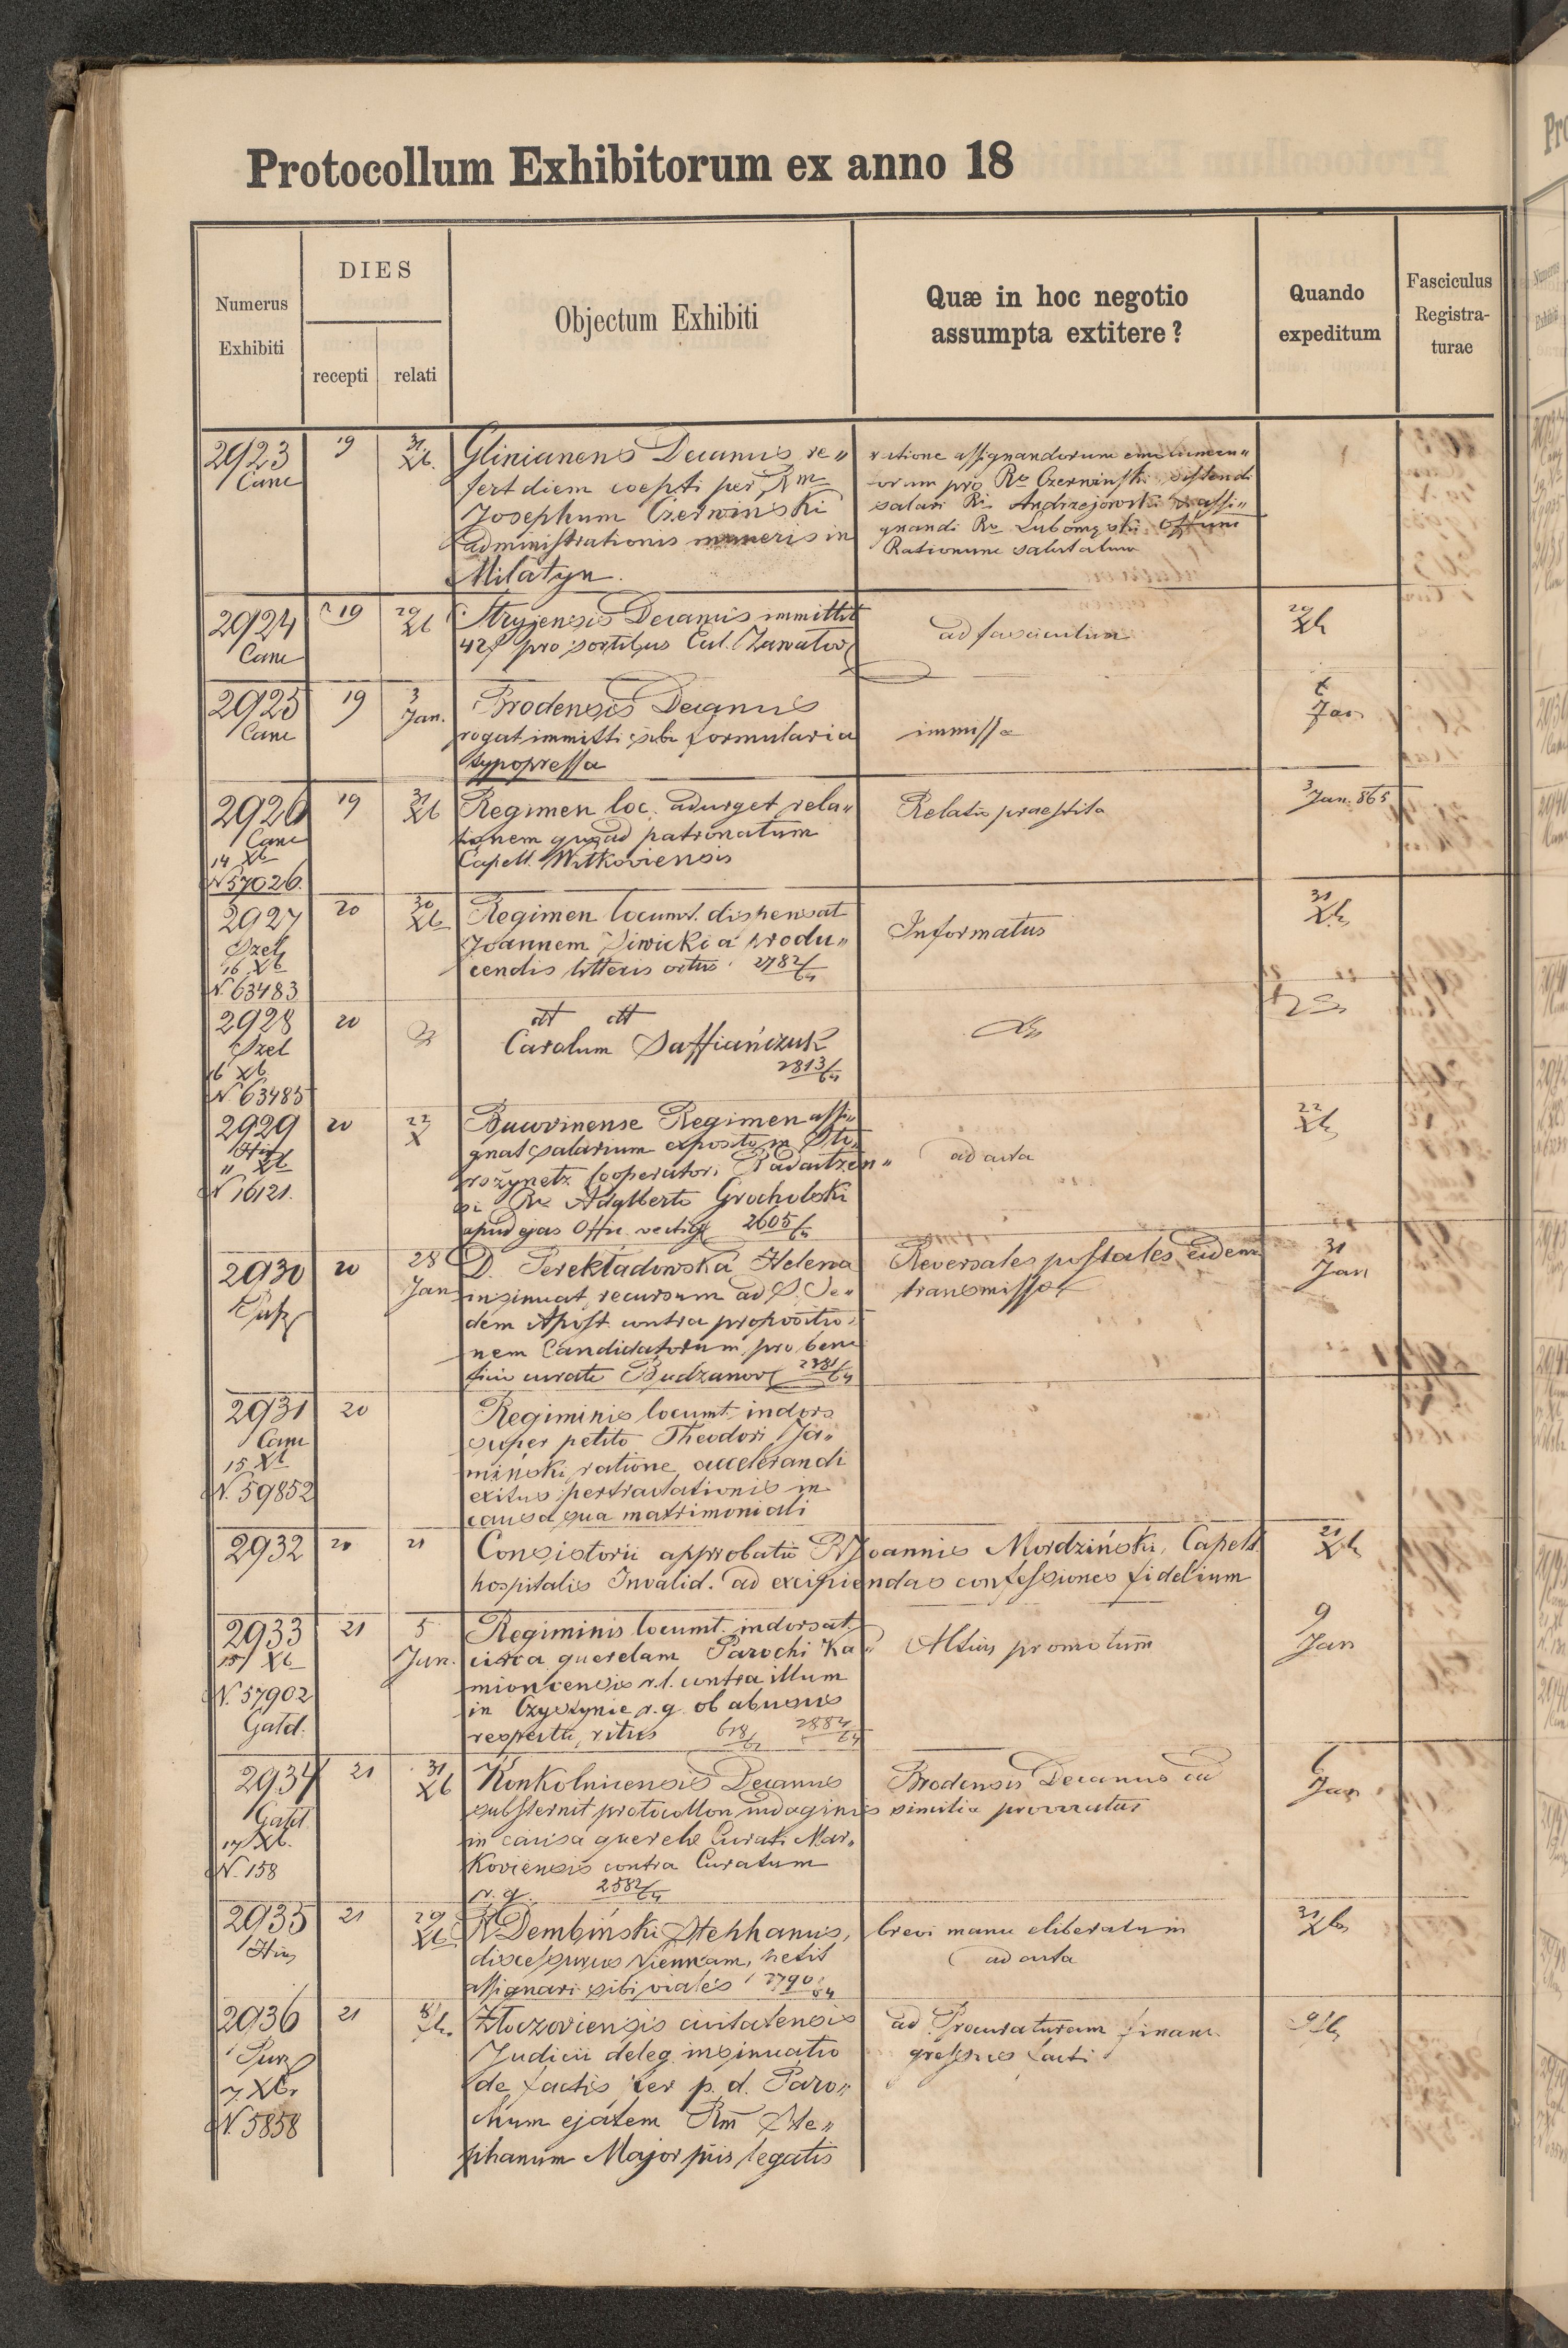 Protocollum Exhibitorum ex anno 18
Numerus
Exhibiti
DIES
recepti
relati
Objectum Exhibiti
Quæ in hoc negotio
assumpta extitere?
Quando
expeditum
Fasciculus
Registra-
turae
2923
Canc
19
31
Xb.
Glinianens Decanus re„
fert diem coepti per Rm
Josephum Czerwinski
administrationis muneris in
Milatyn.
ratione assignandorum emolumen„
torum pro Ro Czerwinski sistendi
salari Ri Andrzejowski assi„
gnandi Ro
Rationum
2924
Canc
19
29
Xb
Stryjensis Decanus immittit
42f pro sortibus
ad fasciculum
29
Xb
2925
Canc
19
3
Jan.
Brodensis Decanus
rogat immitti sibi formularia
typopressa
immissa
Jan
2926
Canc
14 Xb
N 57026.
19
31
Xb
Regimen loc. adurget rela„
tionem quoad patronatum
Capell. Witkoviensis
Relatio praestita
3
Jan. 865
2927
Szel
16 Xb
N. 63483
20
30
Xb
Regimen locumt. dispensat
Joannem Siwicki a produ„
cendis litteris ortus 2782/64
Informatus
31
Xb
2928
Szel
16 Xb.
N 63485
20
dtt dtt
Carolum Saffiańczuk
2813/64
2929
Hir
11 Xb
N 16121.
20
22
X
Bucovinense Regimen assi„
gnat salarium exposito in Sto„
rożynetz Cooperatori Radautzen„
si Ro Adalberto Grocholski
apud ejas Offic. vectig 2605/64
ad acta
22
Xb
2930
20
28
Jan
D. Perekładowska Helena
insinuat recursum ad S. Se„
dem Apost. contra propositio„
nem Candidatorum pro bene
ficio curato Budzanov 2381/64
Reversales postales eidem
transmissae
31
Jan
2931
Canc
15 Xb
N. 59852
20
Regiminis locumt. indors
super petito Theodori Ja„
miński ratione accelerandi
exitus pertractationis in
causa sua matrimoniali
2932
20
21
Consistorii approbatio R Joannis Mordziński, Capell.
hospitalis Invalid. ad excipiendas confessiones fidelium
21
Xb
2933
15 Xb
N. 57902
Gald.
21
5
Jan.
Regiminis locumt. indorsat.
circa querelam Parochi Ka„
mioncensis r.l. contra illum
in Czyszynie r.g. ob abusus
respectu ritus 2884/64
Altius promotum
9
Jan
2934
Gald
17 Xb.
N. 158
21
31
Xb
Konkolnicensis Decanus
substernit protocollon indaginis
in causa querelae Curati Mar„
koviensis contra Curatum
r. g. 2582/64
Brodensis Decanus ad
similia provocatus
6
Jan
2935
Hir
21
29
Xb
R Dembiński Stephanus,
discessurus Viennam, petit
assignari sibi viales 2790/64
brevi manu eliberatum
ad acta
31
Xb
2936
7 Xbr
N. 5858
21
Złoczoviensis civitatensis
Judicii deleg. insinuatio
de factis per p. d. Paro„
chum ejatem Rm Ste„
phanum Major piis legatis
ad Procuraturam financ.
gressus facti